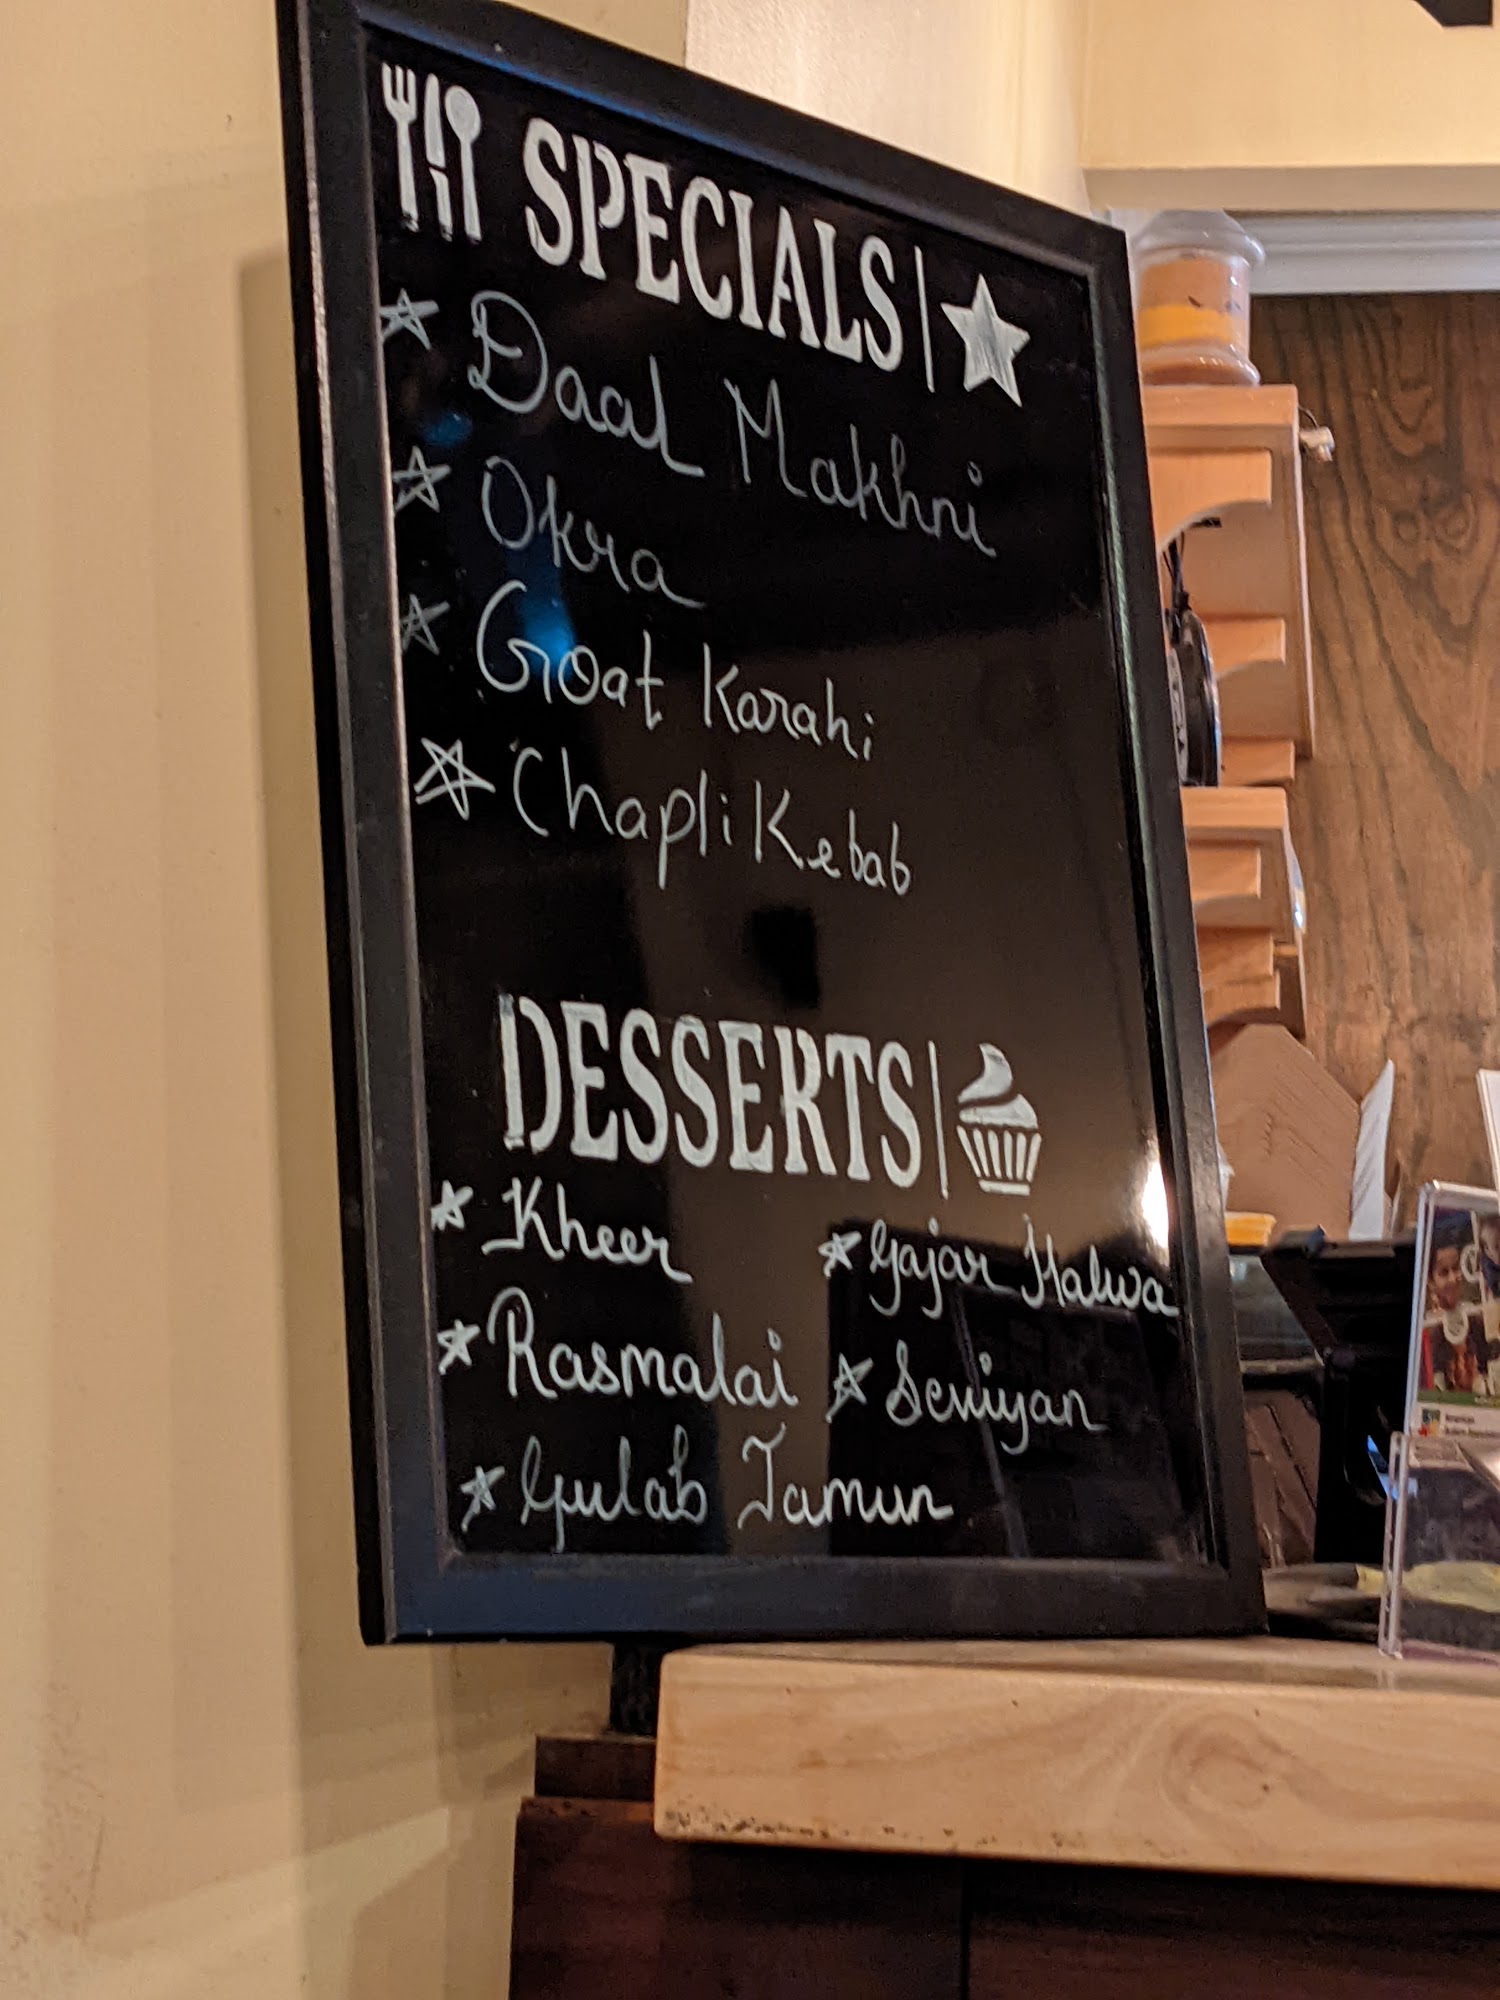 SPECIALS
Daal Makhni
Okra
Goat Karahi
Chapli Kebab
DESSERTS
Kheer
Gajar Halwa
Rasmalai
Seviyan
Gulab Jamun